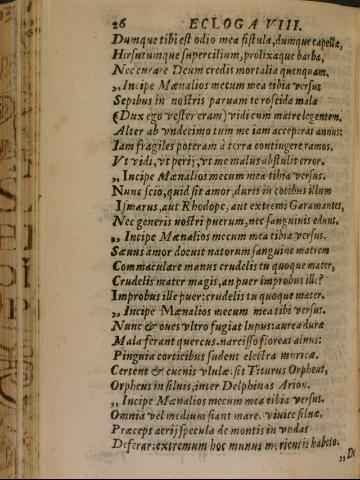 26 ECLOGA VIII.
Dumque tibi est odio mea fistula, dumque capellæ,
Hirsutumque supercilium, prolixaque barba,
Nec curare Deum credis mortalia quenquam.
„ Incipe Mænalios mecum mea tibia versus
Sepibus in nostris paruam te roscida mala
(Dux ego vester eram) vidi cum matre legentem.
Alter ab vndecimo tum me iam acceperat annus:
Iam fragiles poteram à terra contingere ramos.
Vt vidi, vt perij, vt me malus abstulit error.
„ Incipe Mænalios mecum mea tibia versus.
Nunc scio, quid sit amor, duris in cotibus illum
Ismarus, aut Rhodope, aut extremi Garamantes,
Nec generis nostri puerum, nec sanguinis edunt.
„ Incipe Mænalios mecum mea tibia versus.
Sæuus amor docuit natorum sanguine matrem
Commaculare manus crudelis tu quoque mater,
Crudelis mater magis, an puer improbus ille?
Improbus ille puer: crudelis tu quoque mater.
„ Incipe Mænalios mecum mea tibi versus.
Nunc & oues vltro fugiat lupus: aurea duræ
Mala ferant quercus. narcisso floreat alnus:
Pinguia corticibus sudent electra myricæ.
Certent & cucnis vlulæ: sit Titurus Orpheus,
Orpheus in siluis, inter Delphinas Arion.
„ Incipe Mænalios mecum mea tibia versus.
Omnia vel medium fiant mare. viuite siluæ.
Præceps aerij specula de montis in vndas
Deferar: extremum hoc munus morientis habeto.
„De